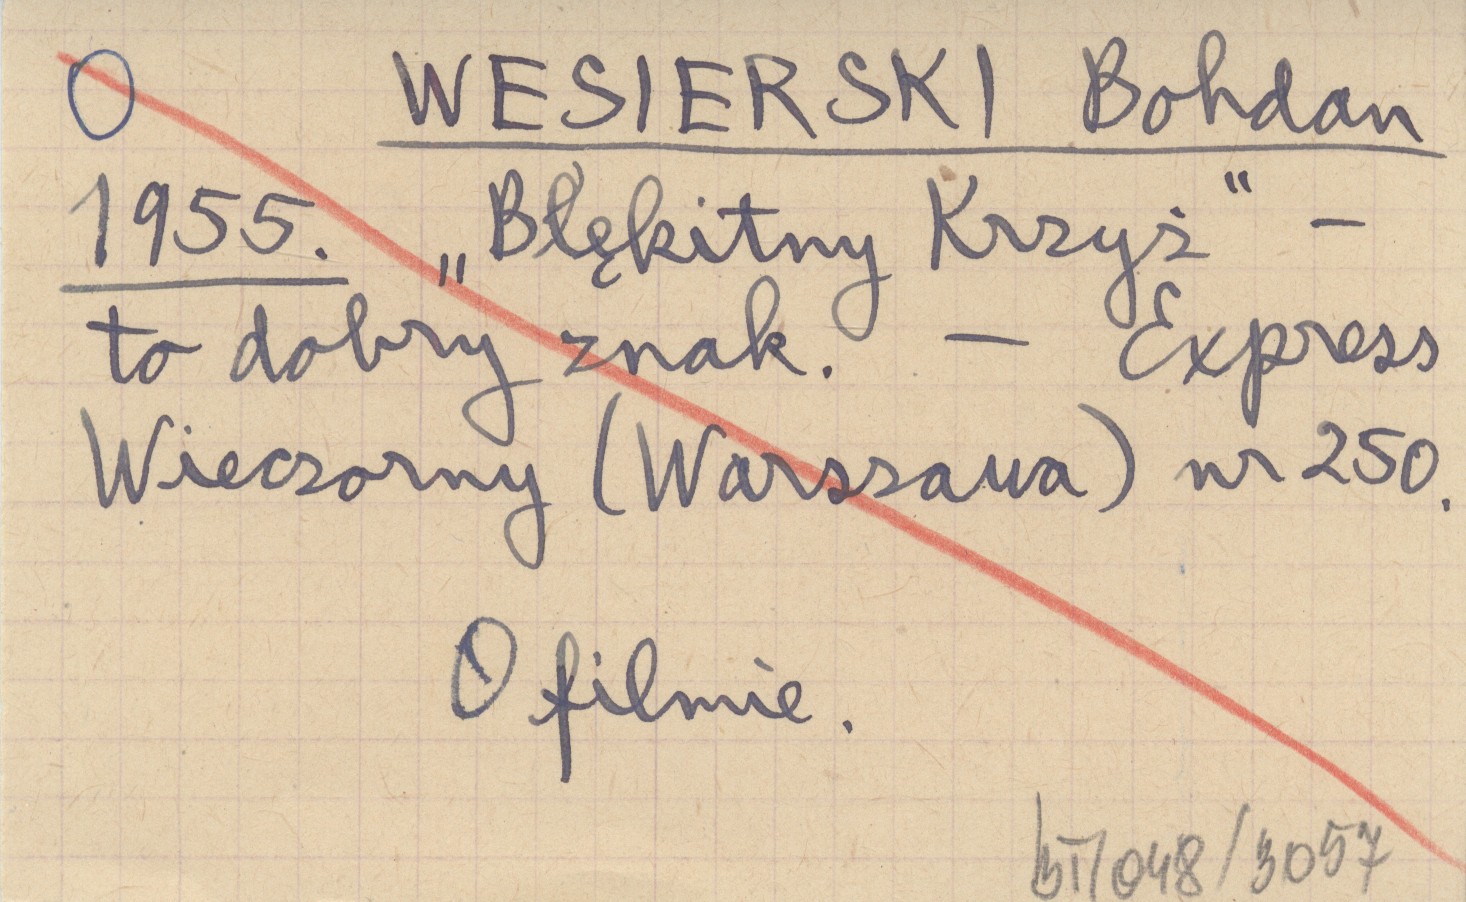 O WESIERSKI Bohdan
1955. „Błękitny Krzyż" –
to dobry znak. – Express
Wieczorny (Warszawa) nr 250.
O filmie.
/048/3057